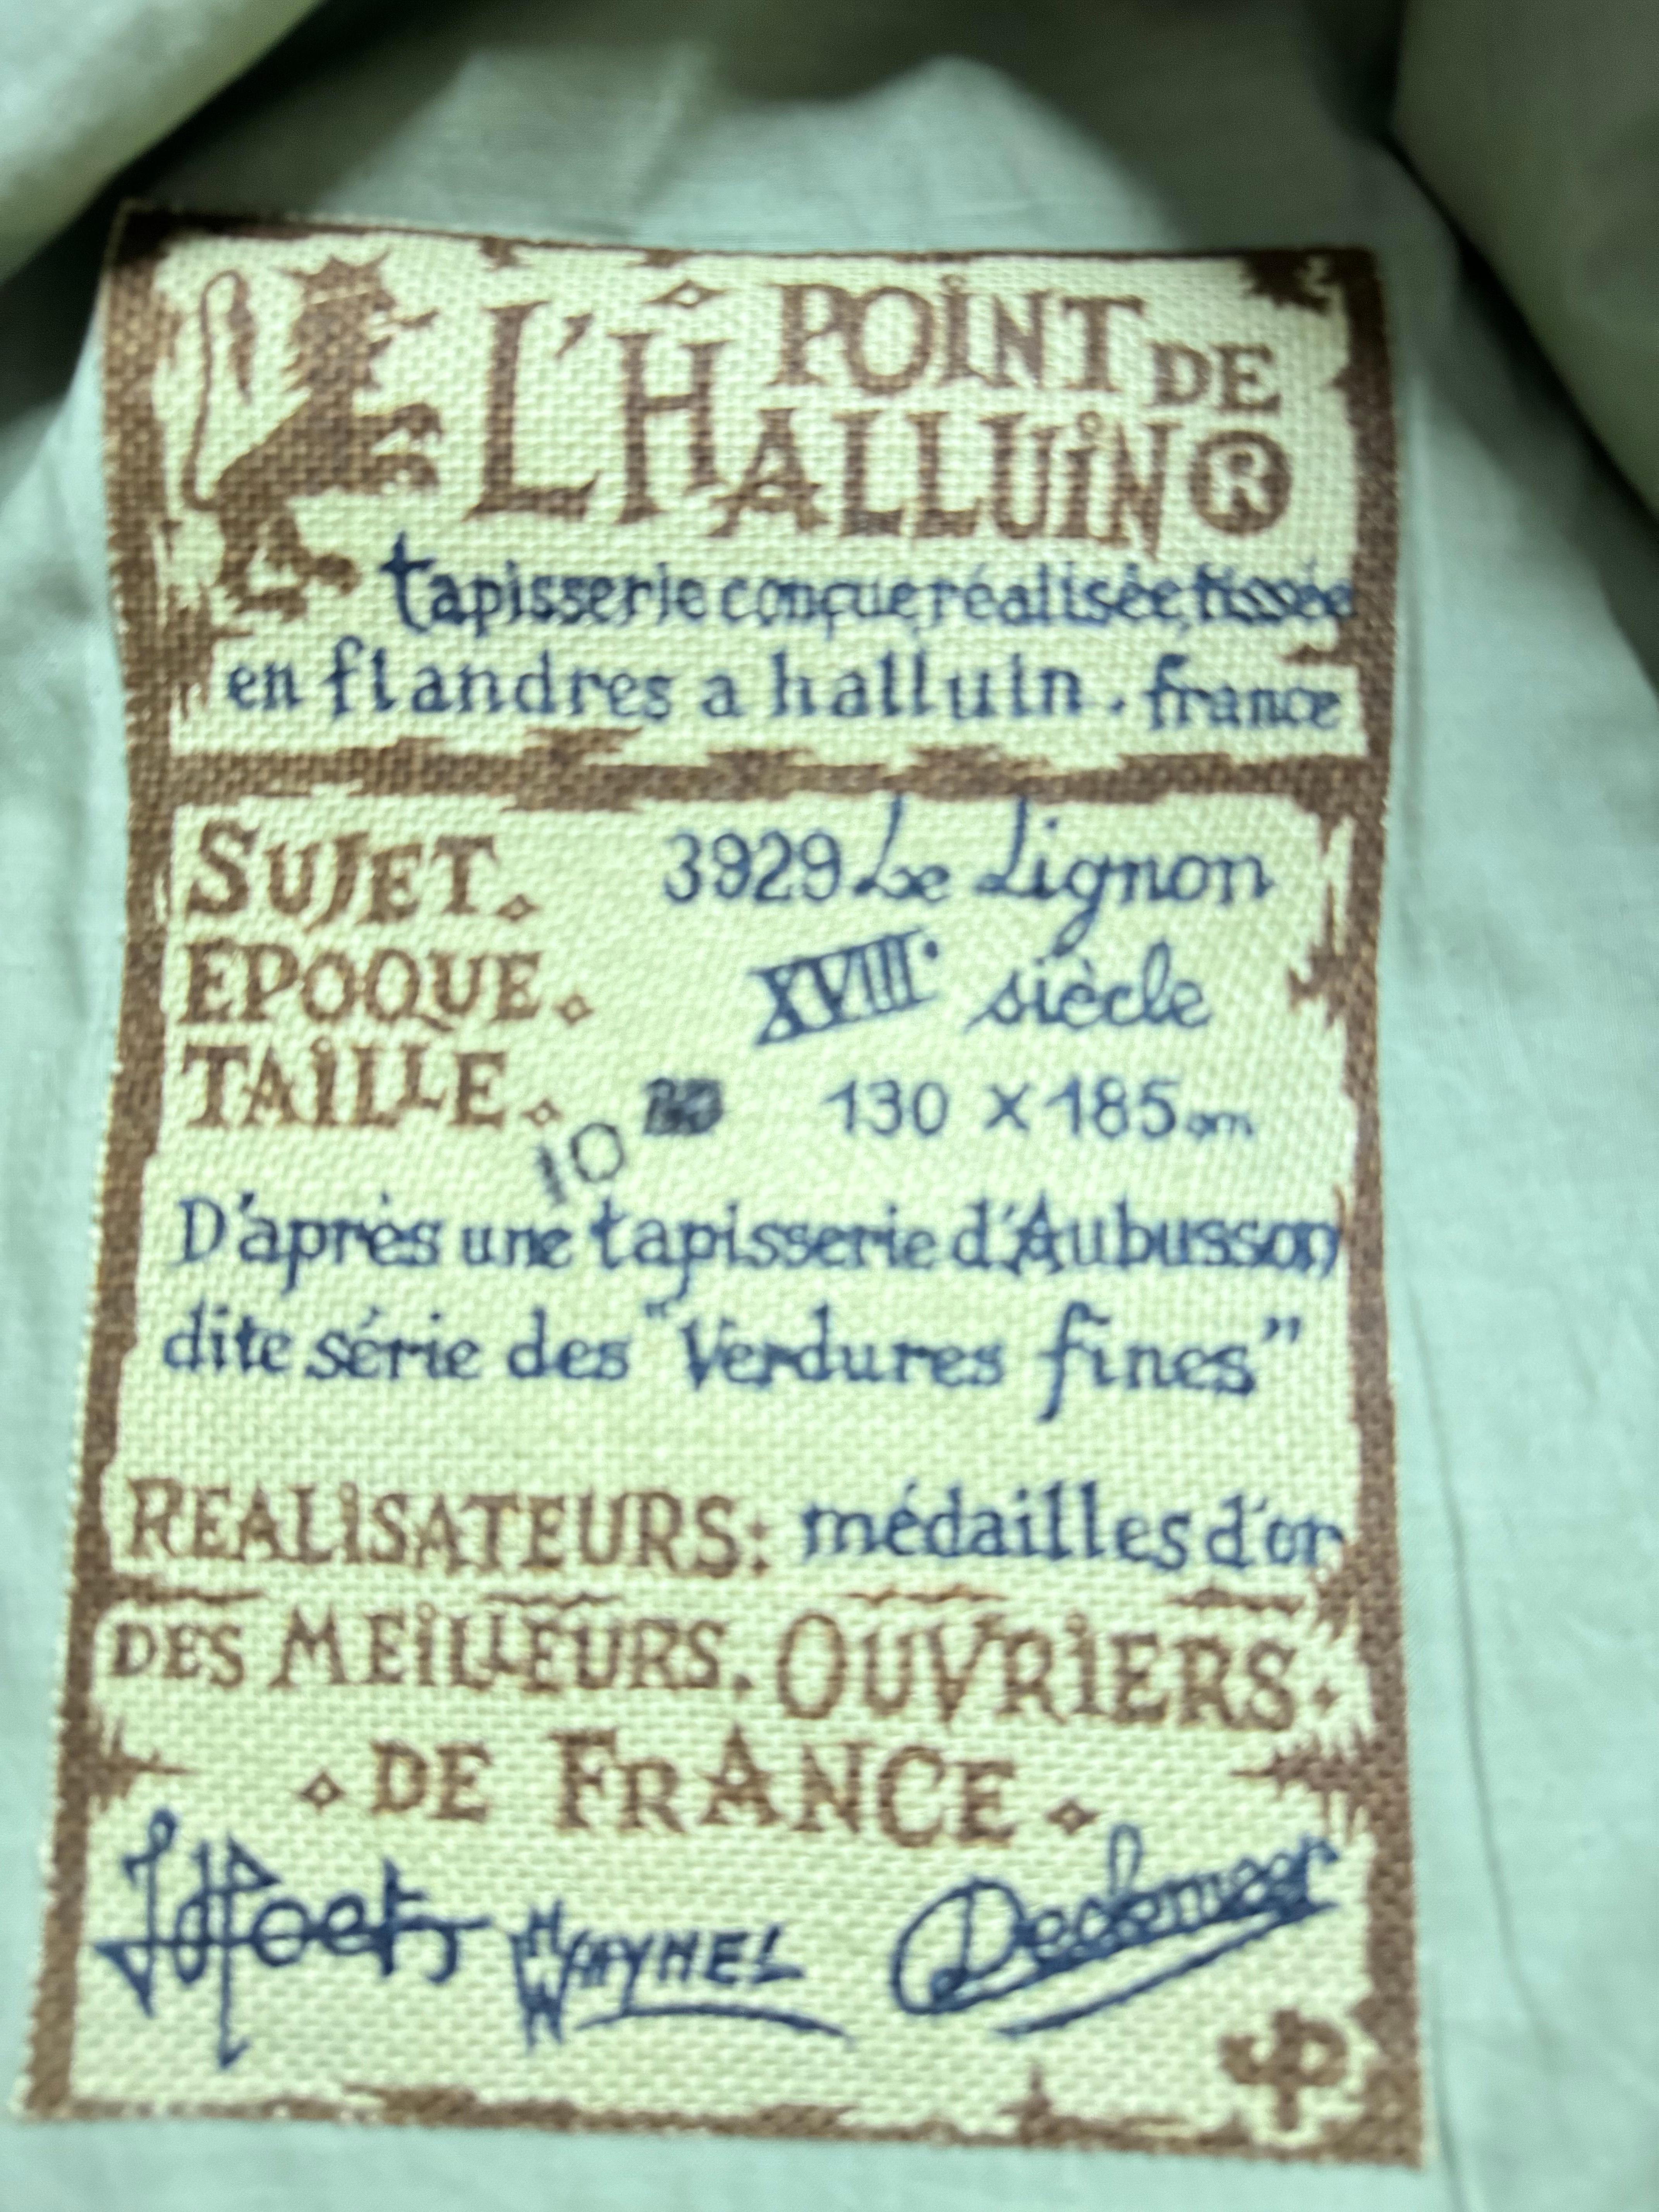 POINT DE
L'HALLUIN ®
tapisserie conçue, réalisée, tissée
en flandres a halluin. france
SUJET. 3929 Le Lignon
EPOQUE. XVIII° siècle
TAILLE. 130 x 185 cm
10
D'après une tapisserie d'Aubusson
dite série des "Verdures fines"
REALISATEURS: médailles d'or
DES MEILLEURS. OUVRIERS.
DE FRANCE